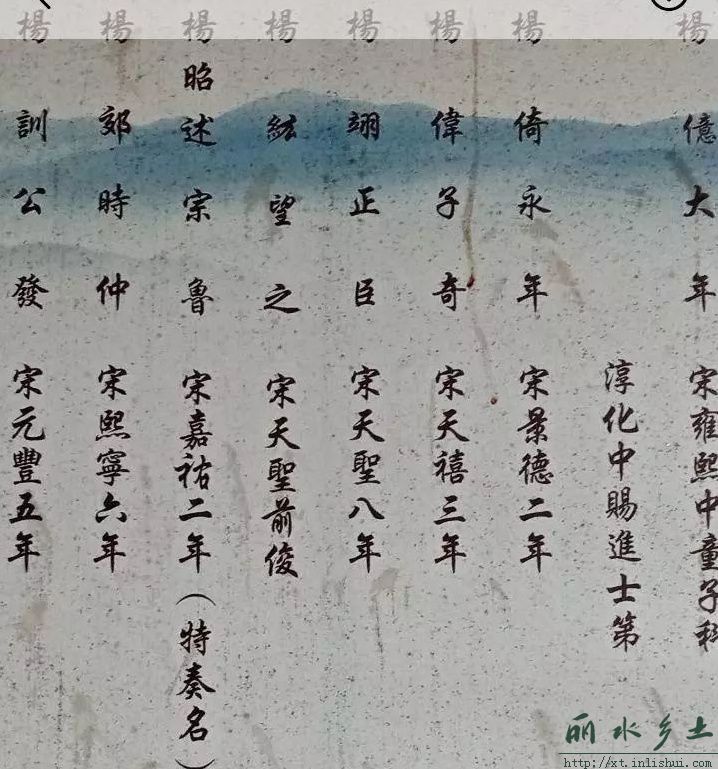 楊億大年 宋雍熙中童子科
淳化中賜進士第
楊倚永年 宋景德二年
楊偉子奇 宋天禧三年
楊翊正臣 宋天聖八年
楊紘望之 宋天聖前後
楊昭述宗魯 宋嘉祐二年(特奏名)
楊郊時仲 宋熙寧六年
楊訓公發 宋元豐五年
丽水乡土
http://xt.inlishui.com